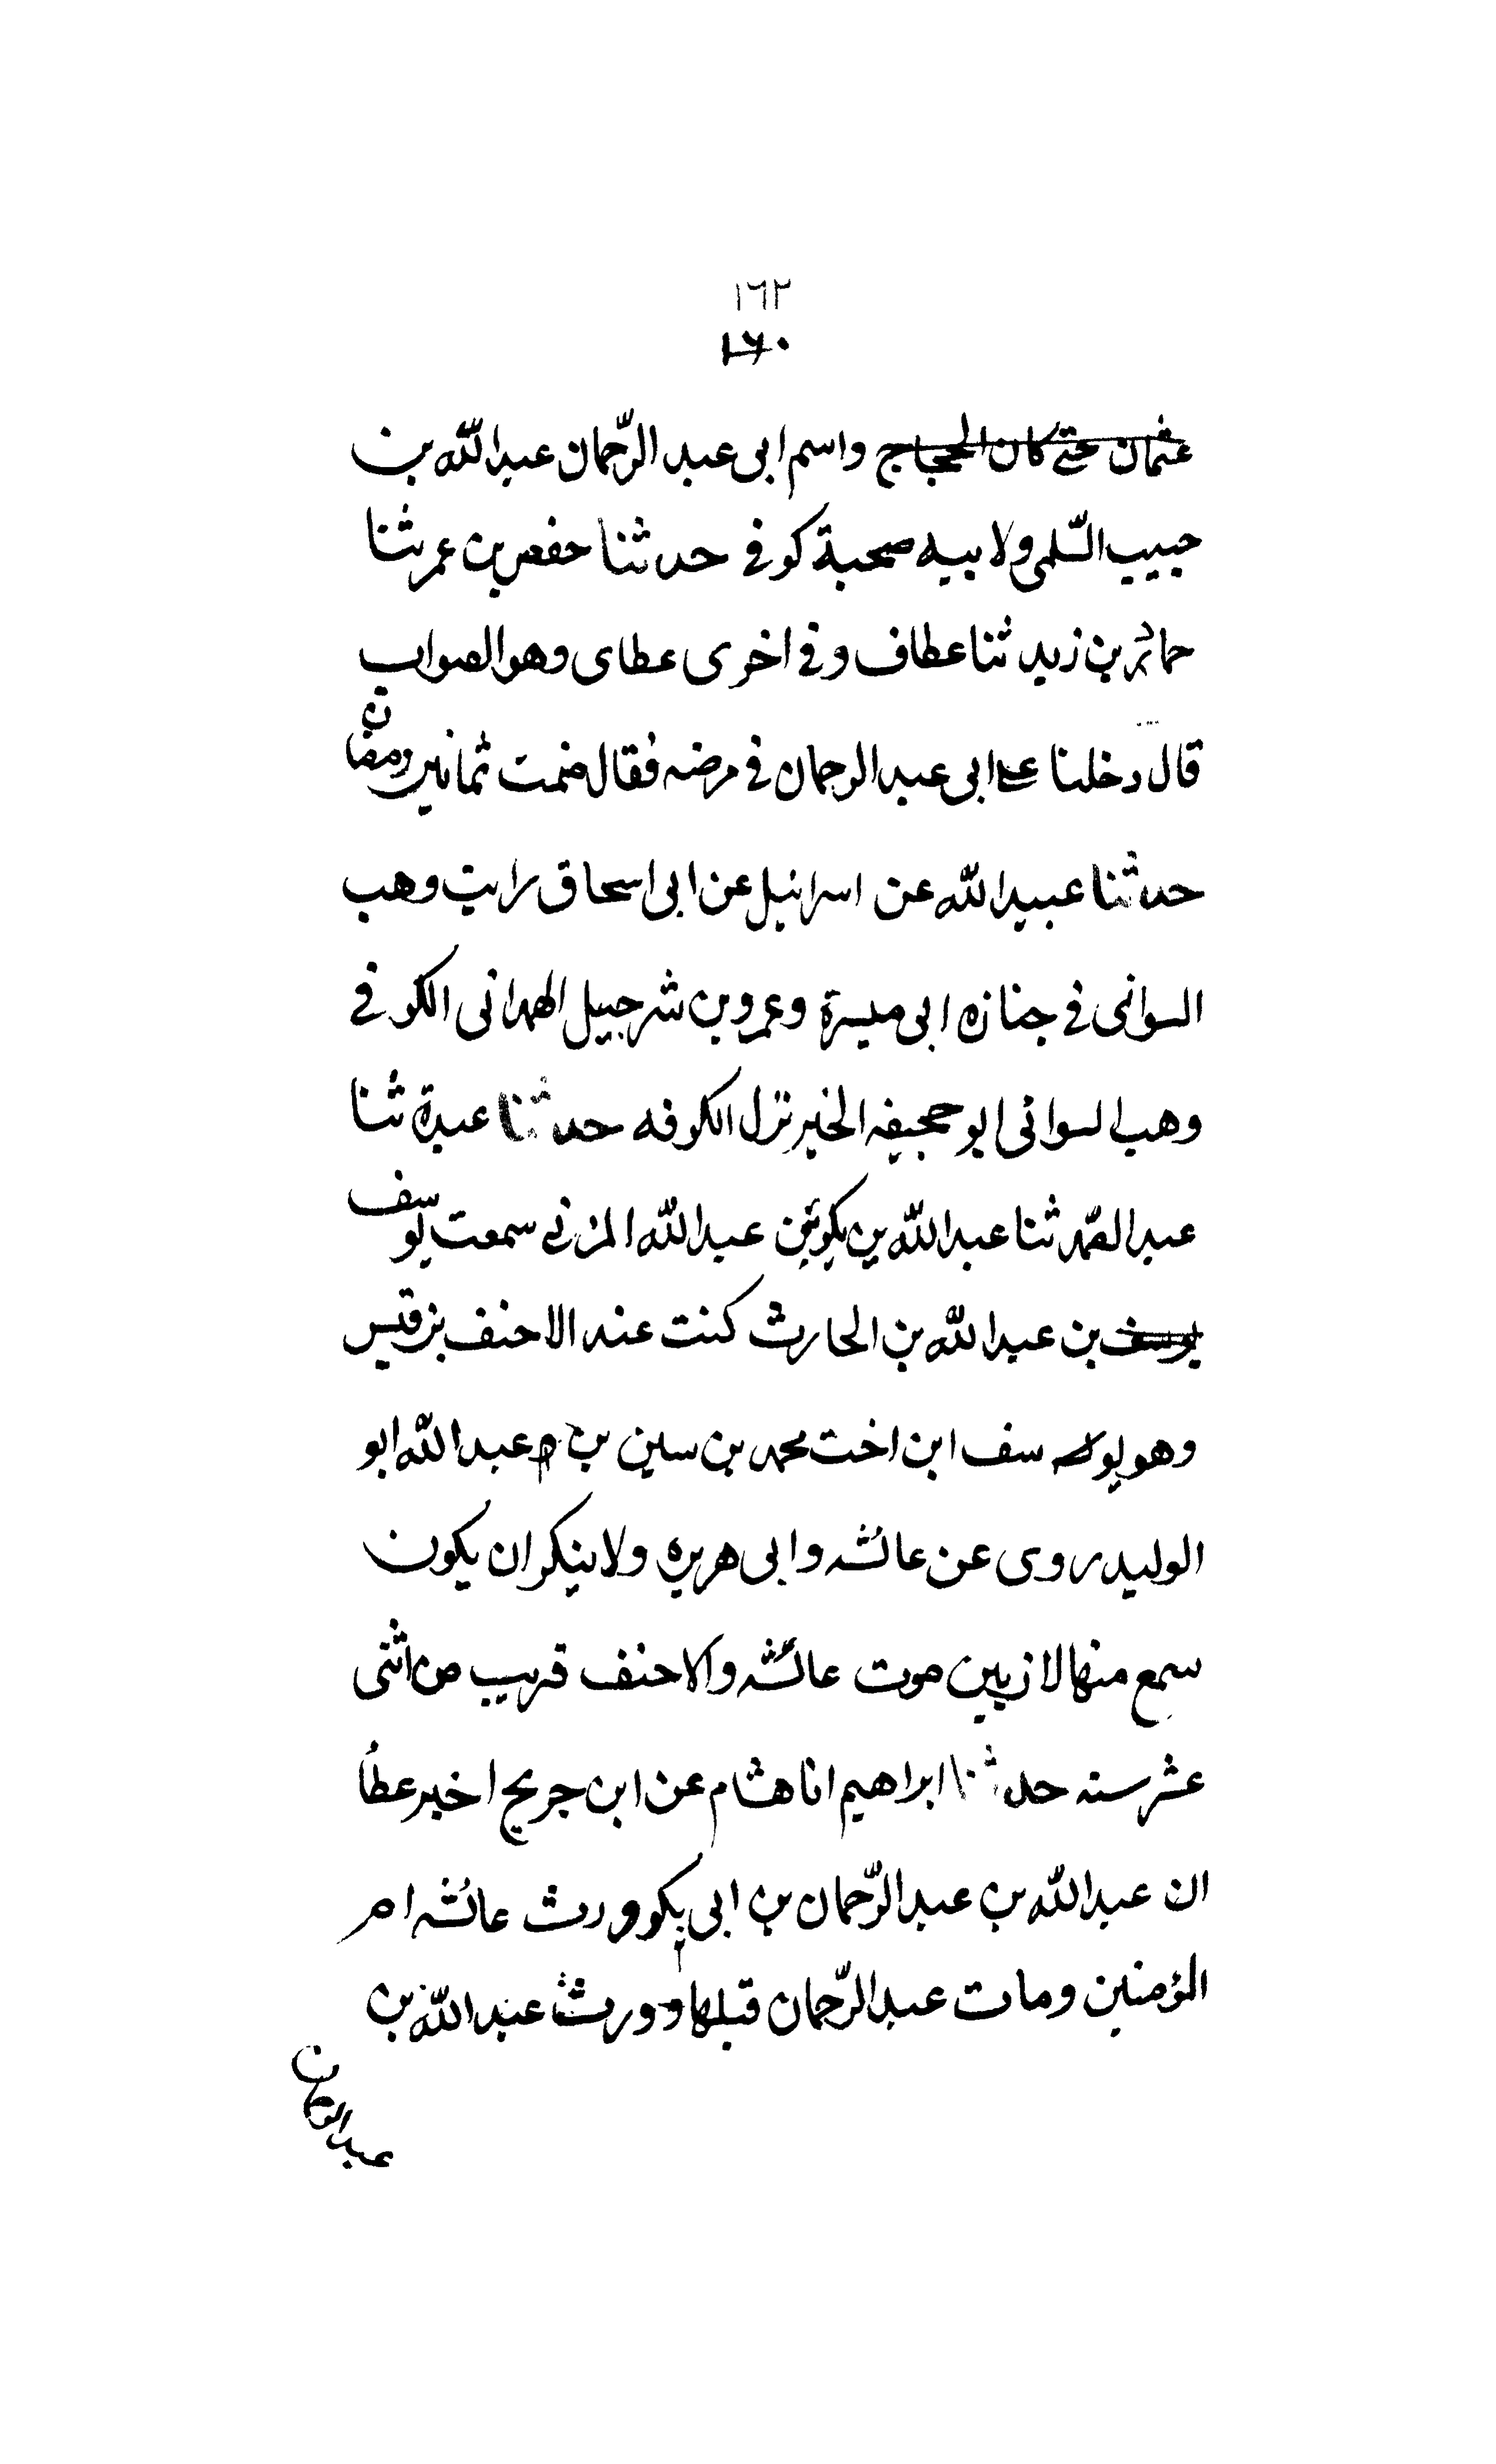 ١٦٢
١٦٠
عثمان حتى كان الحجاج واسم ابى عبد الرّحمان عبد اللّه بن
حبيب السّلمى ولابيه صحبة كوفى حدثنا حفص بن عمر ثنا
حماد بن زيد ثنا عطاف وفى اخرى عطاى وهو الصواب
قال دخلنا على ابى عبد الرحمان فى مرضه فقال صمت ثمانين رمضان
حدثنا عبيد اللّه عن اسرائيل عن ابى اسحاق رايت وهب
السوائى فى جنازه ابى ميسرة وعمرو بن شرحبيل الهمدانى الكوفى
وهب السوائى ابو جحيفه الخير نزل الكوفه حدثنا عبدة ثنا
عبد الصّمد ثنا عبد اللّه بن بكر بن عبد اللّه المزنى سمعت يوسف
يوسف بن عبد اللّه بن الحارث كنت عند الاحنف بن قيس
وهو يو سف ابن اخت محمد بن سيرين عبد اللّه ابو
الوليد روى عن عائشه وابى هريره ولا ينكر ان يكون
سمع منها لان بين موت عائشه والاحنف قريب من اثنى
عشر سنه حدثنا ابراهيم انا هشام عن ابن جريج اخبر عطأ
ان عبد اللّه بن عبد الرّحمان بن ابى بكر ورث عائشه ام
المؤمنين ومات عبد الرّحمان قبلها وورث عبد اللّه بن
عبد الرحمان